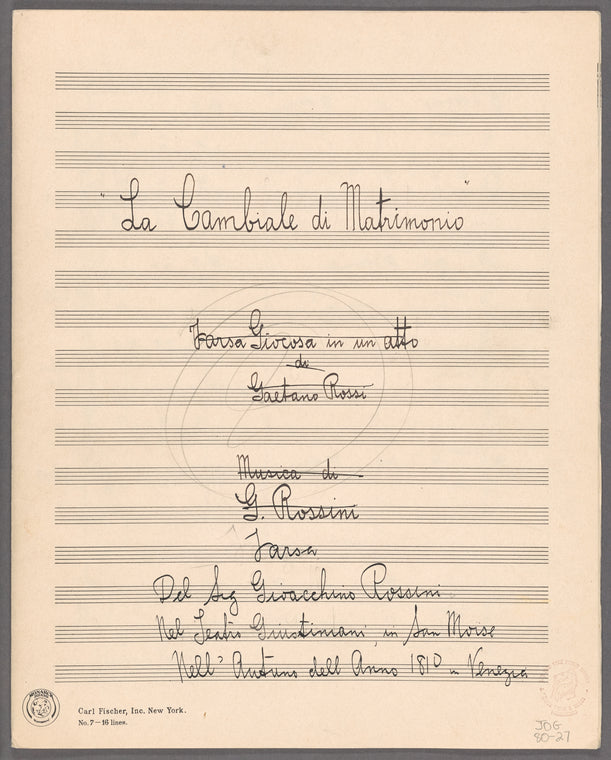 "La Cambiale di Matrimonio"
Farsa Giocosa in un atto
di
Gaetano Rossi
Musica di
G. Rossini
Farsa
Del Sig Gioacchino Rossini
Nel Teatro Giustiniani in San Moise
Nell' Autuno dell Anno 1810 in Venezia
Carl Fischer, Inc. New York.
No. 7 – 16 lines.
JOG
80-27